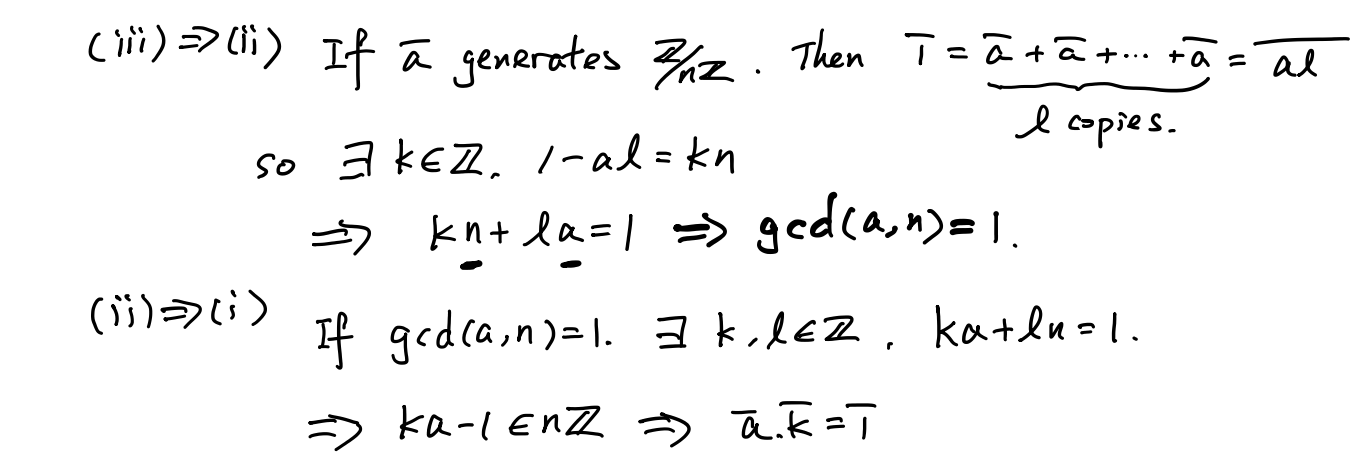 (iii) ⇒ (ii) If a̅ generates ℤ/nℤ. Then 1̅ = a̅ + a̅ + ⋯ + a̅ = \overline{al}
l copies.
so ∃ k ∈ ℤ. 1 - al = kn
⇒ kn + la = 1 ⇒ gcd(a, n) = 1.
(ii) ⇒ (i) If gcd(a, n) = 1. ∃ k, l ∈ ℤ, ka + ln = 1.
⇒ ka - 1 ∈ nℤ ⇒ a̅.k̅ = 1̅